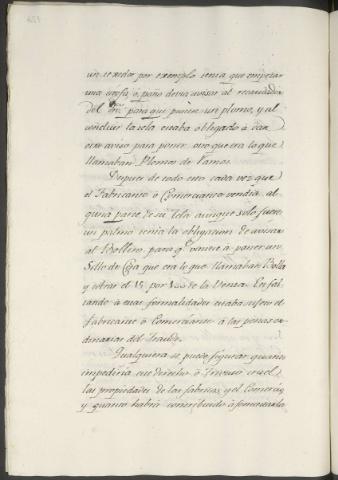 un texedor por exemplo tenia que empezar
una estofa, ó paño devia avisar al recaudador
del dro. para que pusiese un plomo, y al
concluir la tela estaba obligado á dar
otro aviso para poner otro que era lo que
llamaban Plomos de ramos.
Despues de todo esto cada vez que
el Fabricante ó Comerciante vendia al
guna parte de su tela aunque solo fuere
un palmo tenia la obligacion de avisar
al Bollero, para q.e vaniese á poner un
Sello de Cera que era lo que llamaban Bolla
y cobrar el 15 por 100 de la Venta. En fal
tando á estas formalidades estaba sujeto el
Fabricante ó Comerciante á las penas or
dinarias del fraude.
Qualquiera se puede figurar quanto
impediria este derecho ó Tributo cruel
las propiedades de las fabricas, y el Comercio,
y quanto habrá contribuido á